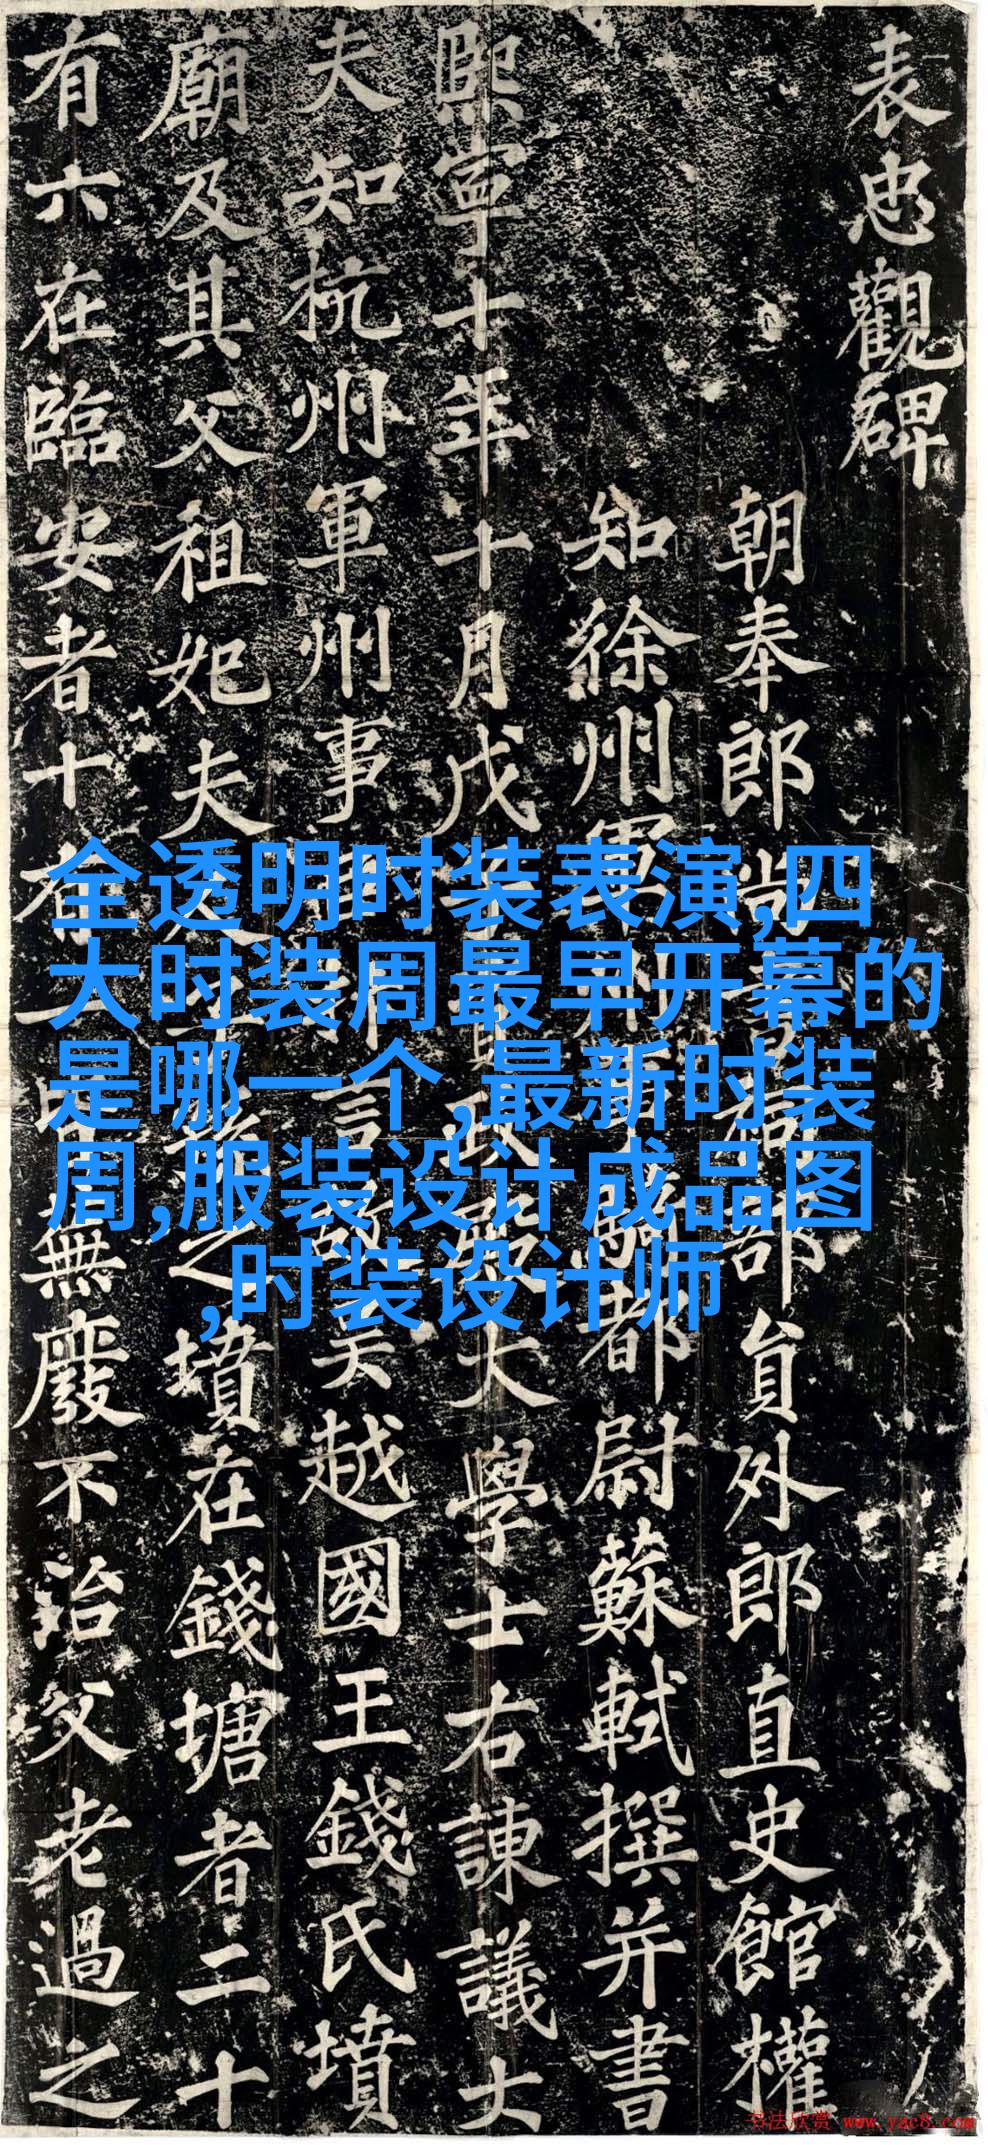 表忠觀碑
朝奉郎尚書祠部員外郎直史館權
知徐州軍州事騎都尉蘇軾撰并書
熙寧十年十月戊子資政殿大學士右諫議大
夫知杭州軍州事臣抃言故吳越國王錢氏墳
廟及其父祖妃夫人子孫之墳在錢塘者二十
有六在臨安者十有一皆蕪廢不治父老過之
全透明时装表演,四
大时装周最早开幕的
是哪一个,最新时装
周,服装设计成品图
,时装设计师
书法欣赏 www.yac8.com